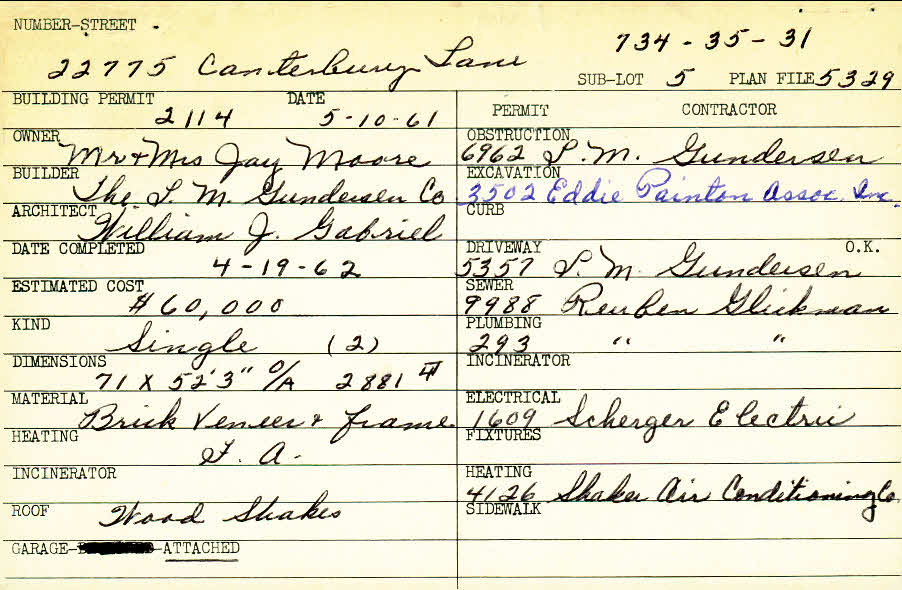 NUMBER-STREET
734-35-31
22775 Canterbury Lane
SUB-LOT 5 PLAN FILE 5329
BUILDING PERMIT DATE
2114 5-10-61
PERMIT CONTRACTOR
OWNER
Mr + Mrs Jay Moore
OBSTRUCTION
6962 L. M. Gundersen
BUILDER
The L. M. Gundersen Co
EXCAVATION
3502 Eddie Painton Assoc. Inc.
ARCHITECT
William J. Gabriel
CURB
DATE COMPLETED
4-19-62
DRIVEWAY O.K.
5357 L. M. Gundersen
ESTIMATED COST
$60,000
SEWER
9988 Reuben Glickman
KIND
Single (2)
PLUMBING
293 " "
DIMENSIONS
71 X 52'3" O/A 2881
INCINERATOR
MATERIAL
Brick Veneer + frame
ELECTRICAL
1609 Scherger Electric
HEATING
F. A.
FIXTURES
INCINERATOR
HEATING
4126 Shaker Air Conditioning Co
ROOF
Wood Shakes
SIDEWALK
GARAGE- -ATTACHED